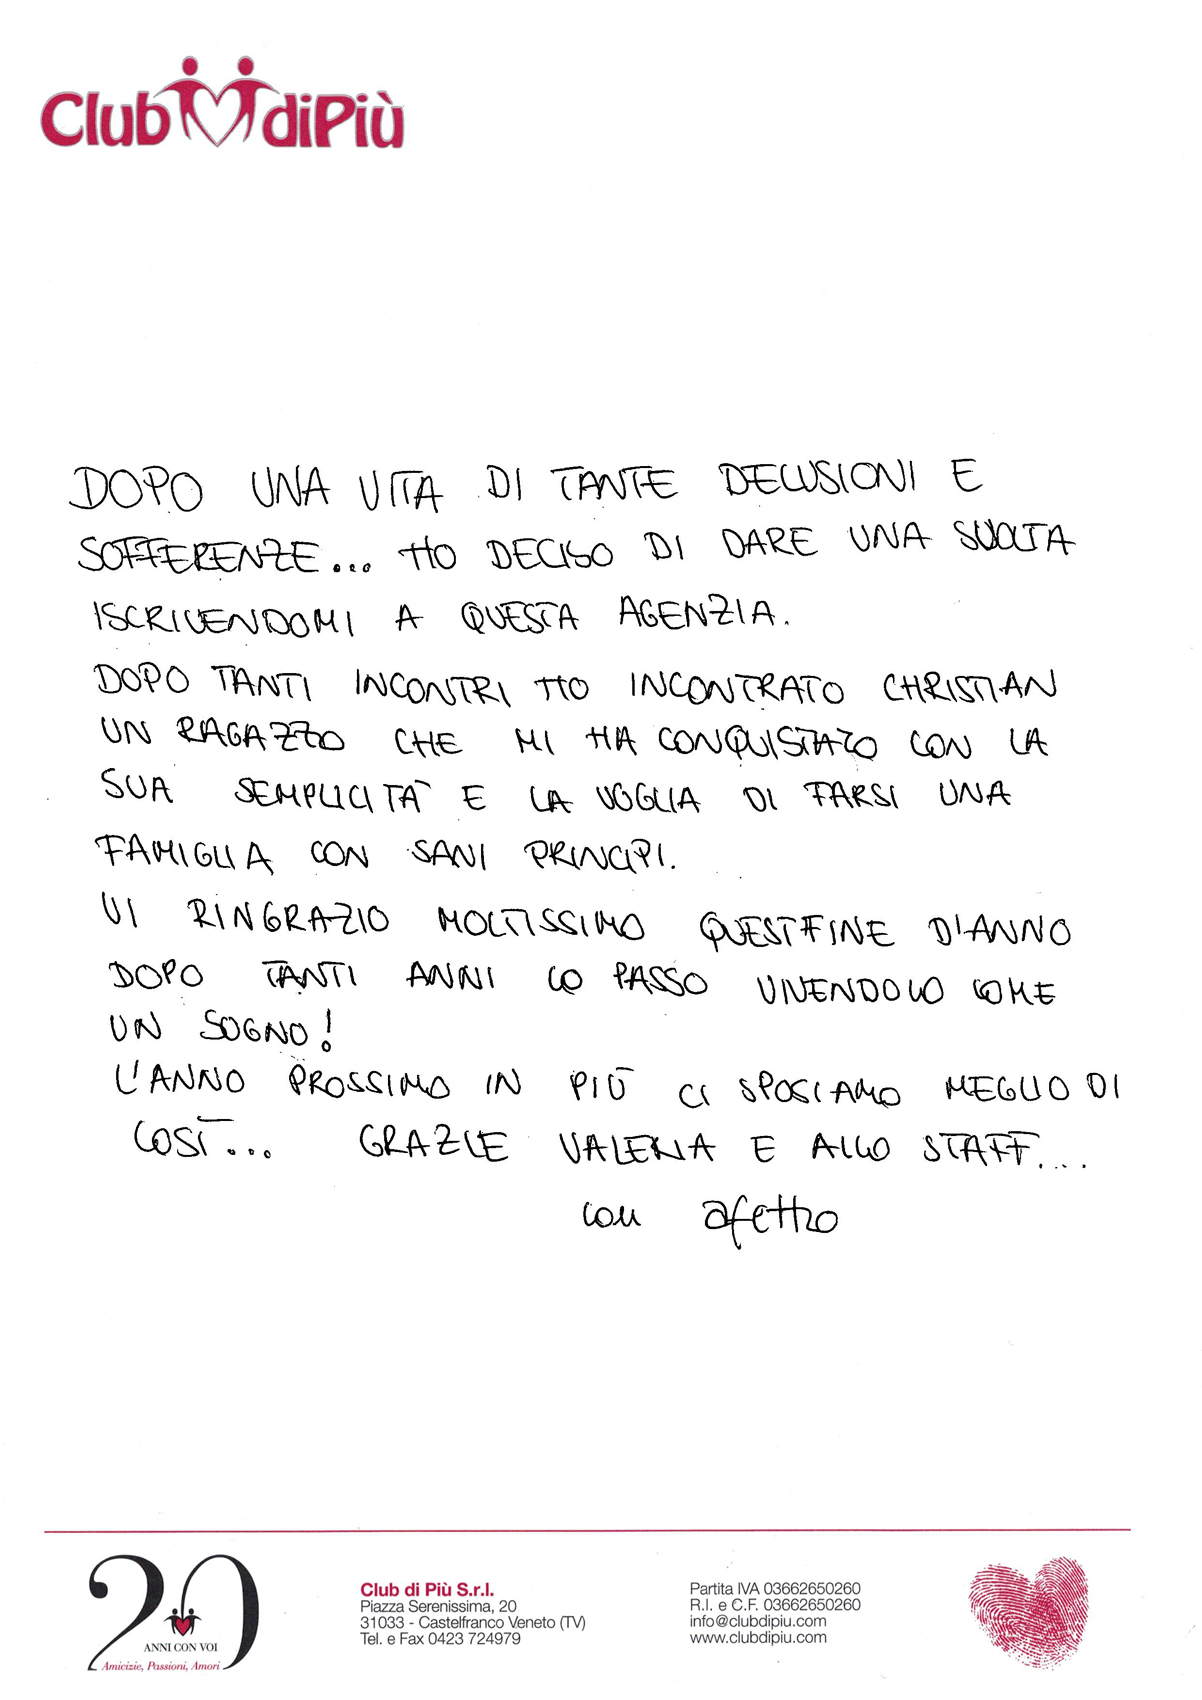 Club diPiù
DOPO UNA VITA DI TANTE DELUSIONI E
SOFFERENZE... HO DECISO DI DARE UNA SVOLTA
ISCRIVENDOMI A QUESTA AGENZIA.
DOPO TANTI INCONTRI HO INCONTRATO CHRISTIAN
UN RAGAZZO CHE MI HA CONQUISTATO CON LA
SUA SEMPLICITÀ E LA VOGLIA DI FARSI UNA
FAMIGLIA CON SANI PRINCIPI.
VI RINGRAZIO MOLTISSIMO QUEST FINE D'ANNO
DOPO TANTI ANNI LO PASSO VIVENDOLO COME
UN SOGNO!
L'ANNO PROSSIMO IN PIÙ CI SPOSIAMO MEGLIO DI
COSÌ... GRAZIE VALERIA E ALLO STAFF....
con afetto
20
ANNI CON VOI
Amicizie, Passioni, Amori
Club di Più S.r.l.
Piazza Serenissima, 20
31033 - Castelfranco Veneto (TV)
Tel. e Fax 0423 724979
Partita IVA 03662650260
R.I. e C.F. 03662650260
info@clubdipiu.com
www.clubdipiu.com